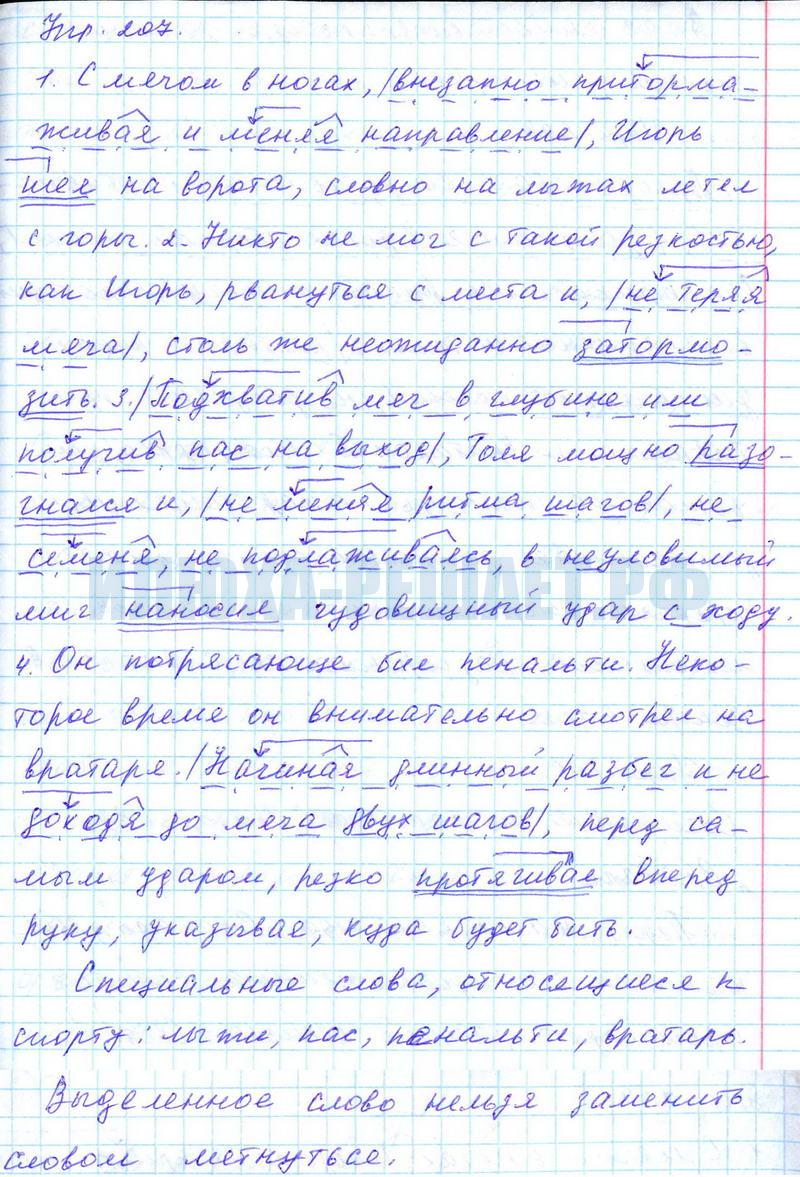 Упр. 207.
1. С мячом в ногах, /внезапно приторма-
живая и меняя направление/, Игорь
шел на ворота, словно на лыжах летел
с горы. 2. Никто не мог с такой резкостью,
как Игорь, рвануться с места и, /не теряя
мяча/, столь же неожиданно затормо-
зить. 3. /Подхватив мяч в глубине или
получив пас на выход/, Толя мощно разо-
гнался и, /не меняя ритма шагов/, не
семеня, не подлаживаясь, в неуловимый
миг наносил чудовищный удар с ходу.
4. Он потрясающе бил пенальти. Неко-
торое время он внимательно смотрел на
вратаря. /Начиная длинный разбег и не
доходя до мяча двух шагов/, перед са-
мым ударом, резко протягивал вперед
руку, указывая, куда будет бить.
Специальные слова, относящиеся к
спорту: лыжи, пас, пенальти, вратарь.
Выделенное слово нельзя заменить
словом метнуться.